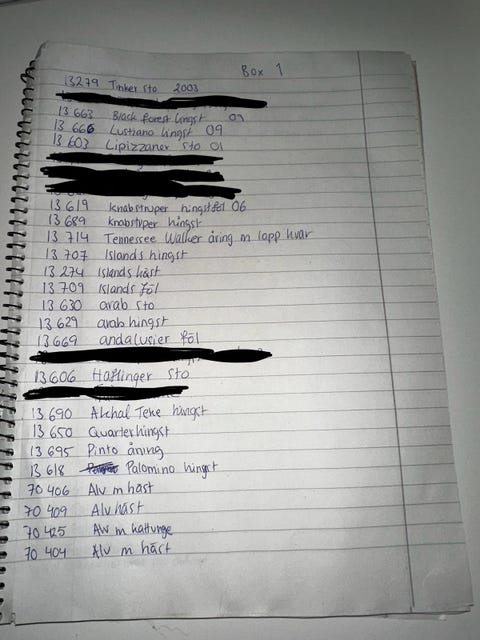 Box 1
13279 Tinker sto 2003
13 663 Black forest hingst 09
13 666 Lusitano hingst 09
13 603 Lipizzaner sto 01
13 619 knabstruper hingstföl 06
13 689 knabstrper hingst
13 714 Tennessee Walker åring m lapp kvar
13 707 Islands hingst
13 274 Islands häst
13 709 Islands föl
13 630 arab sto
13 629 arab hingst
13 669 andalusier föl
13 606 Haflinger sto
13 690 Akhal Teke hingst
13 650 Quarterhingst
13 695 Pinto åring
13 618 Palomino hingst
70 406 Alv m häst
70 409 Alvhäst
70 425 Alv m kattunge
70 404 Alv m häst